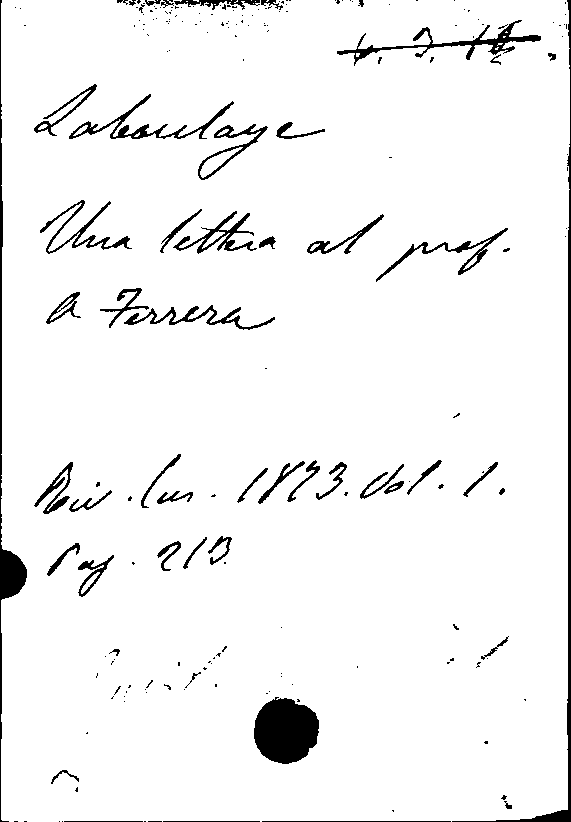 Laboulaye
Una lettera al prof.
A Ferrera
Riv. Eur. 1873. Vol. 1.
Pag. 213